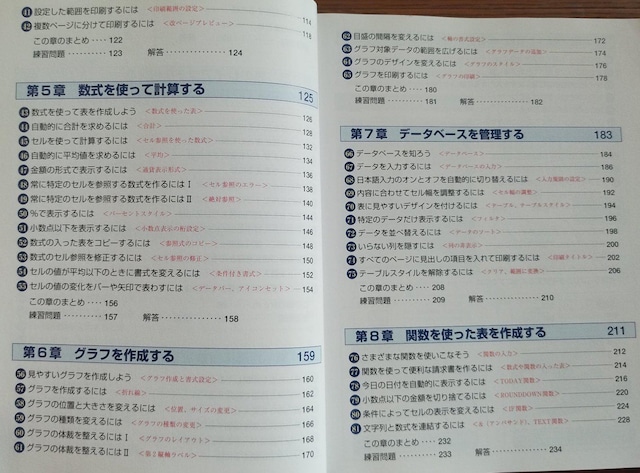 41 設定した範囲を印刷するには <印刷範囲の設定> 114
42 複数ページに分けて印刷するには <改ページプレビュー> 118
この章のまとめ ････ 122
練習問題 ････････ 123 解答 ･･････････ 124
第5章 数式を使って計算する 125
43 数式を使って表を作成しよう <数式を使った表> 126
44 自動的に合計を求めるには <合計> 128
45 セルを使って計算するには <セル参照を使った数式>
46 自動的に平均値を求めるには <平均>
47 金額の形式で表示するには <通貨表示形式> 136
48 常に特定のセルを参照する数式を作るには I <セル参照のエラー> 138
49 常に特定のセルを参照する数式を作るには II <絶対参照> 140
50 %で表示するには <パーセントスタイル> 144
51 小数点以下を表示するには <小数点表示の桁設定> 146
52 数式の入った表をコピーするには <参照式のコピー> 148
53 セル参照の数式を修正するには <セル参照の修正> 150
54 セルの値が平均以下のときに書式を変えるには <条件付き書式> 152
55 セルの値の変化をバーや矢印で表わすには <データバー、アイコンセット> 154
この章のまとめ ････ 156
練習問題 ････････ 157 解答 ･･････････ 158
第6章 グラフを作成する 159
56 見やすいグラフを作成しよう <グラフ作成と書式設定> 160
57 グラフを作成するには <折れ線> 162
58 グラフの位置と大きさを変えるには <位置、サイズの変更> 164
59 グラフの種類を変えるには <グラフの種類の変更> 166
60 グラフの体裁を整えるには I <グラフのレイアウト> 168
61 グラフの体裁を整えるには II <第2縦軸ラベル> 170
62 目盛の間隔を変えるには <軸の書式設定> 172
63 グラフ対象データの範囲を広げるには <グラフデータの追加> 174
64 グラフのデザインを変えるには <グラフのスタイル> 176
65 グラフを印刷するには <グラフの印刷> 178
この章のまとめ ････ 180
練習問題 ････････ 181 解答 ･･････････ 182
第7章 データベースを管理する 183
66 データベースを知ろう <データベース> 184
67 データを入力するには <データベースの入力> 186
68 日本語入力のオンとオフを自動的に切り替えるには <入力規則の設定> 190
69 内容に合わせてセル幅を調整するには <セル幅の調整> 192
70 表に見やすいデザインを付けるには <テーブル、テーブルスタイル> 194
71 特定のデータだけ表示するには <フィルタ> 196
72 データを並べ替えるには <データのソート> 198
73 いらない列を隠すには <列の非表示> 200
74 すべてのページに見出しの項目を入れて印刷するには <印刷タイトル> 202
75 テーブルスタイルを解除するには <クリア、範囲に変換> 206
この章のまとめ ････ 208
練習問題 ････････ 209 解答 ･･････････ 210
第8章 関数を使った表を作成する 211
76 さまざまな関数を使いこなそう <関数の入力> 212
77 関数を使って便利な請求書を作るには <数式や関数の入った表> 214
78 今日の日付を自動的に表示するには <TODAY関数> 216
79 小数点以下の金額を切り捨てるには <ROUNDDOWN関数> 220
80 条件によってセルの表示を変えるには <IF関数> 224
81 文字列と数式を連結するには <&(アンパサンド)、TEXT関数> 228
この章のまとめ ････ 232
練習問題 ････････ 233 解答 ･･････････ 234